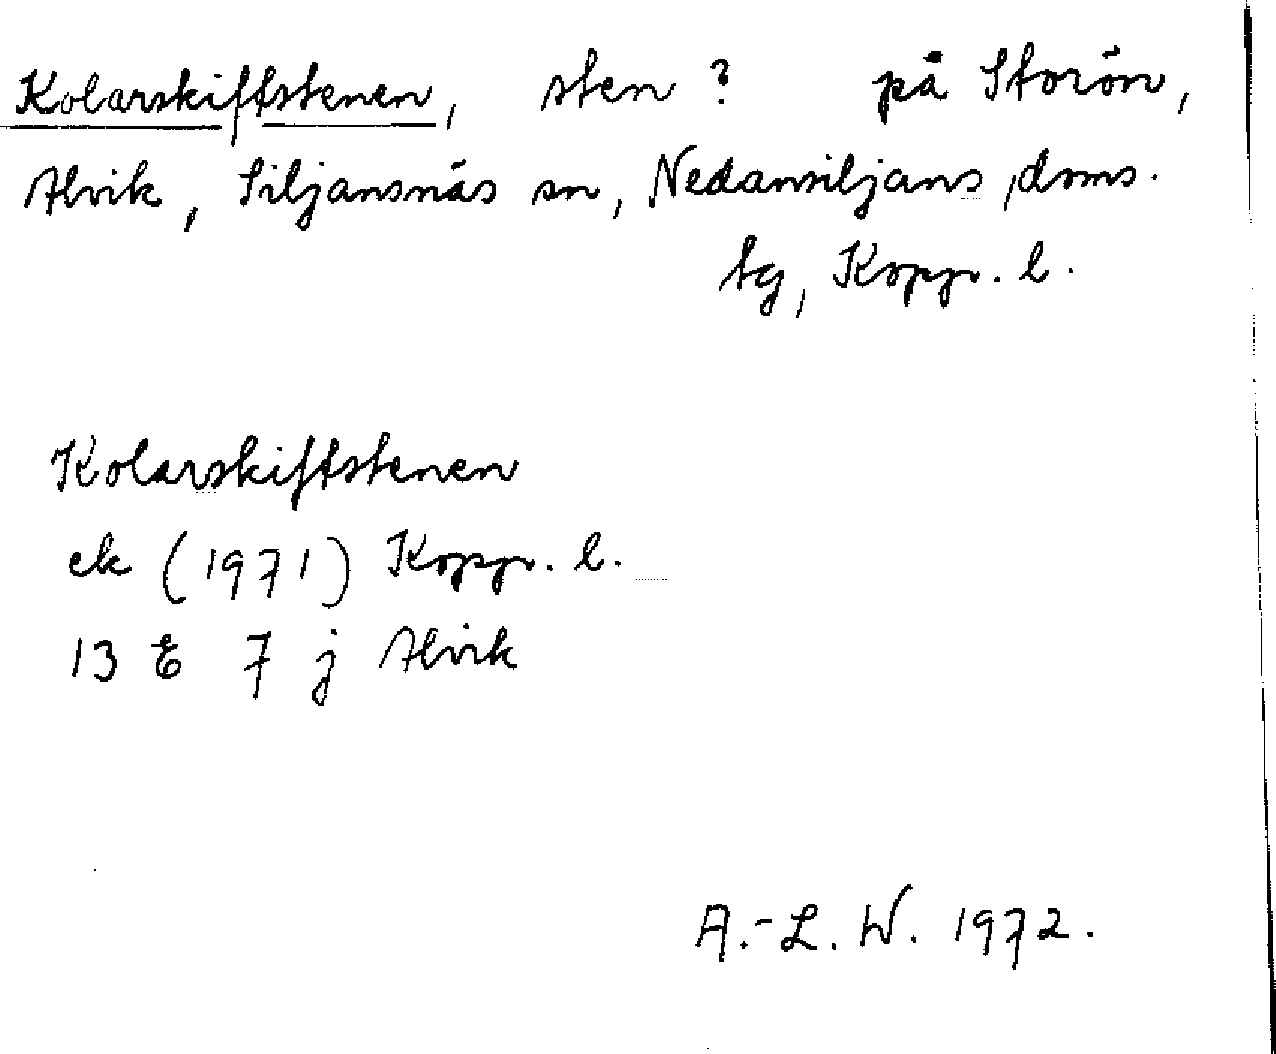 Kolarskiftstenen, sten? på Storön,
Alvik, Siljansnäs sn, Nedansiljans doms.
tg, Kopp. l.
Kolarskiftstenen
ek (1971) Kopp. l.
13 E 7 j Alvik
A.-L. W. 1972.